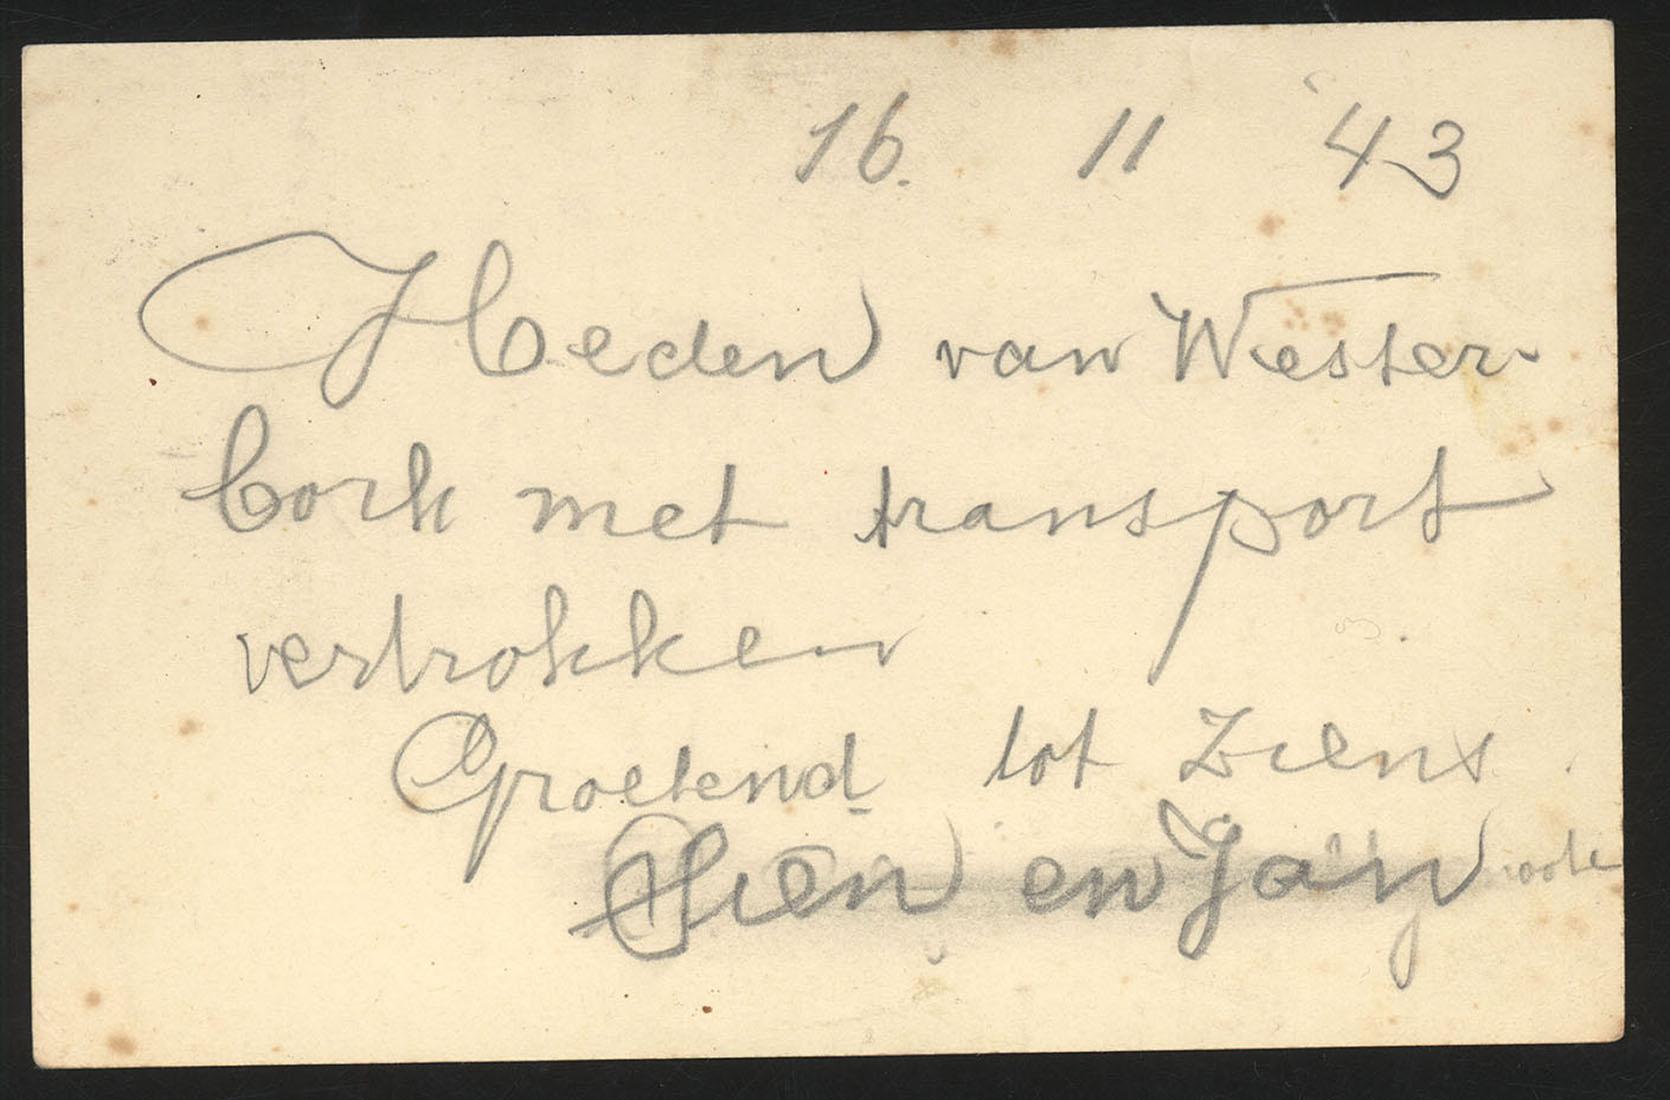 16. 11 '43
Heden van Wester
bork met transport
vertrokken
Groetend tot ziens
Sien en Jan